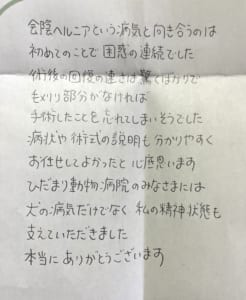 会陰ヘルニアという病気と向き合うのは
初めてのことで困惑の連続でした
術後の回復の速さは驚くばかりで
毛刈り部分がなければ
手術したことを忘れてしまいそうでした
病状や術式の説明も分かりやすく
お任せしてよかったと心底思います
ひだまり動物病院のみなさまには
犬の病気だけでなく 私の精神状態も
支えていただきました
本当に ありがとうございます